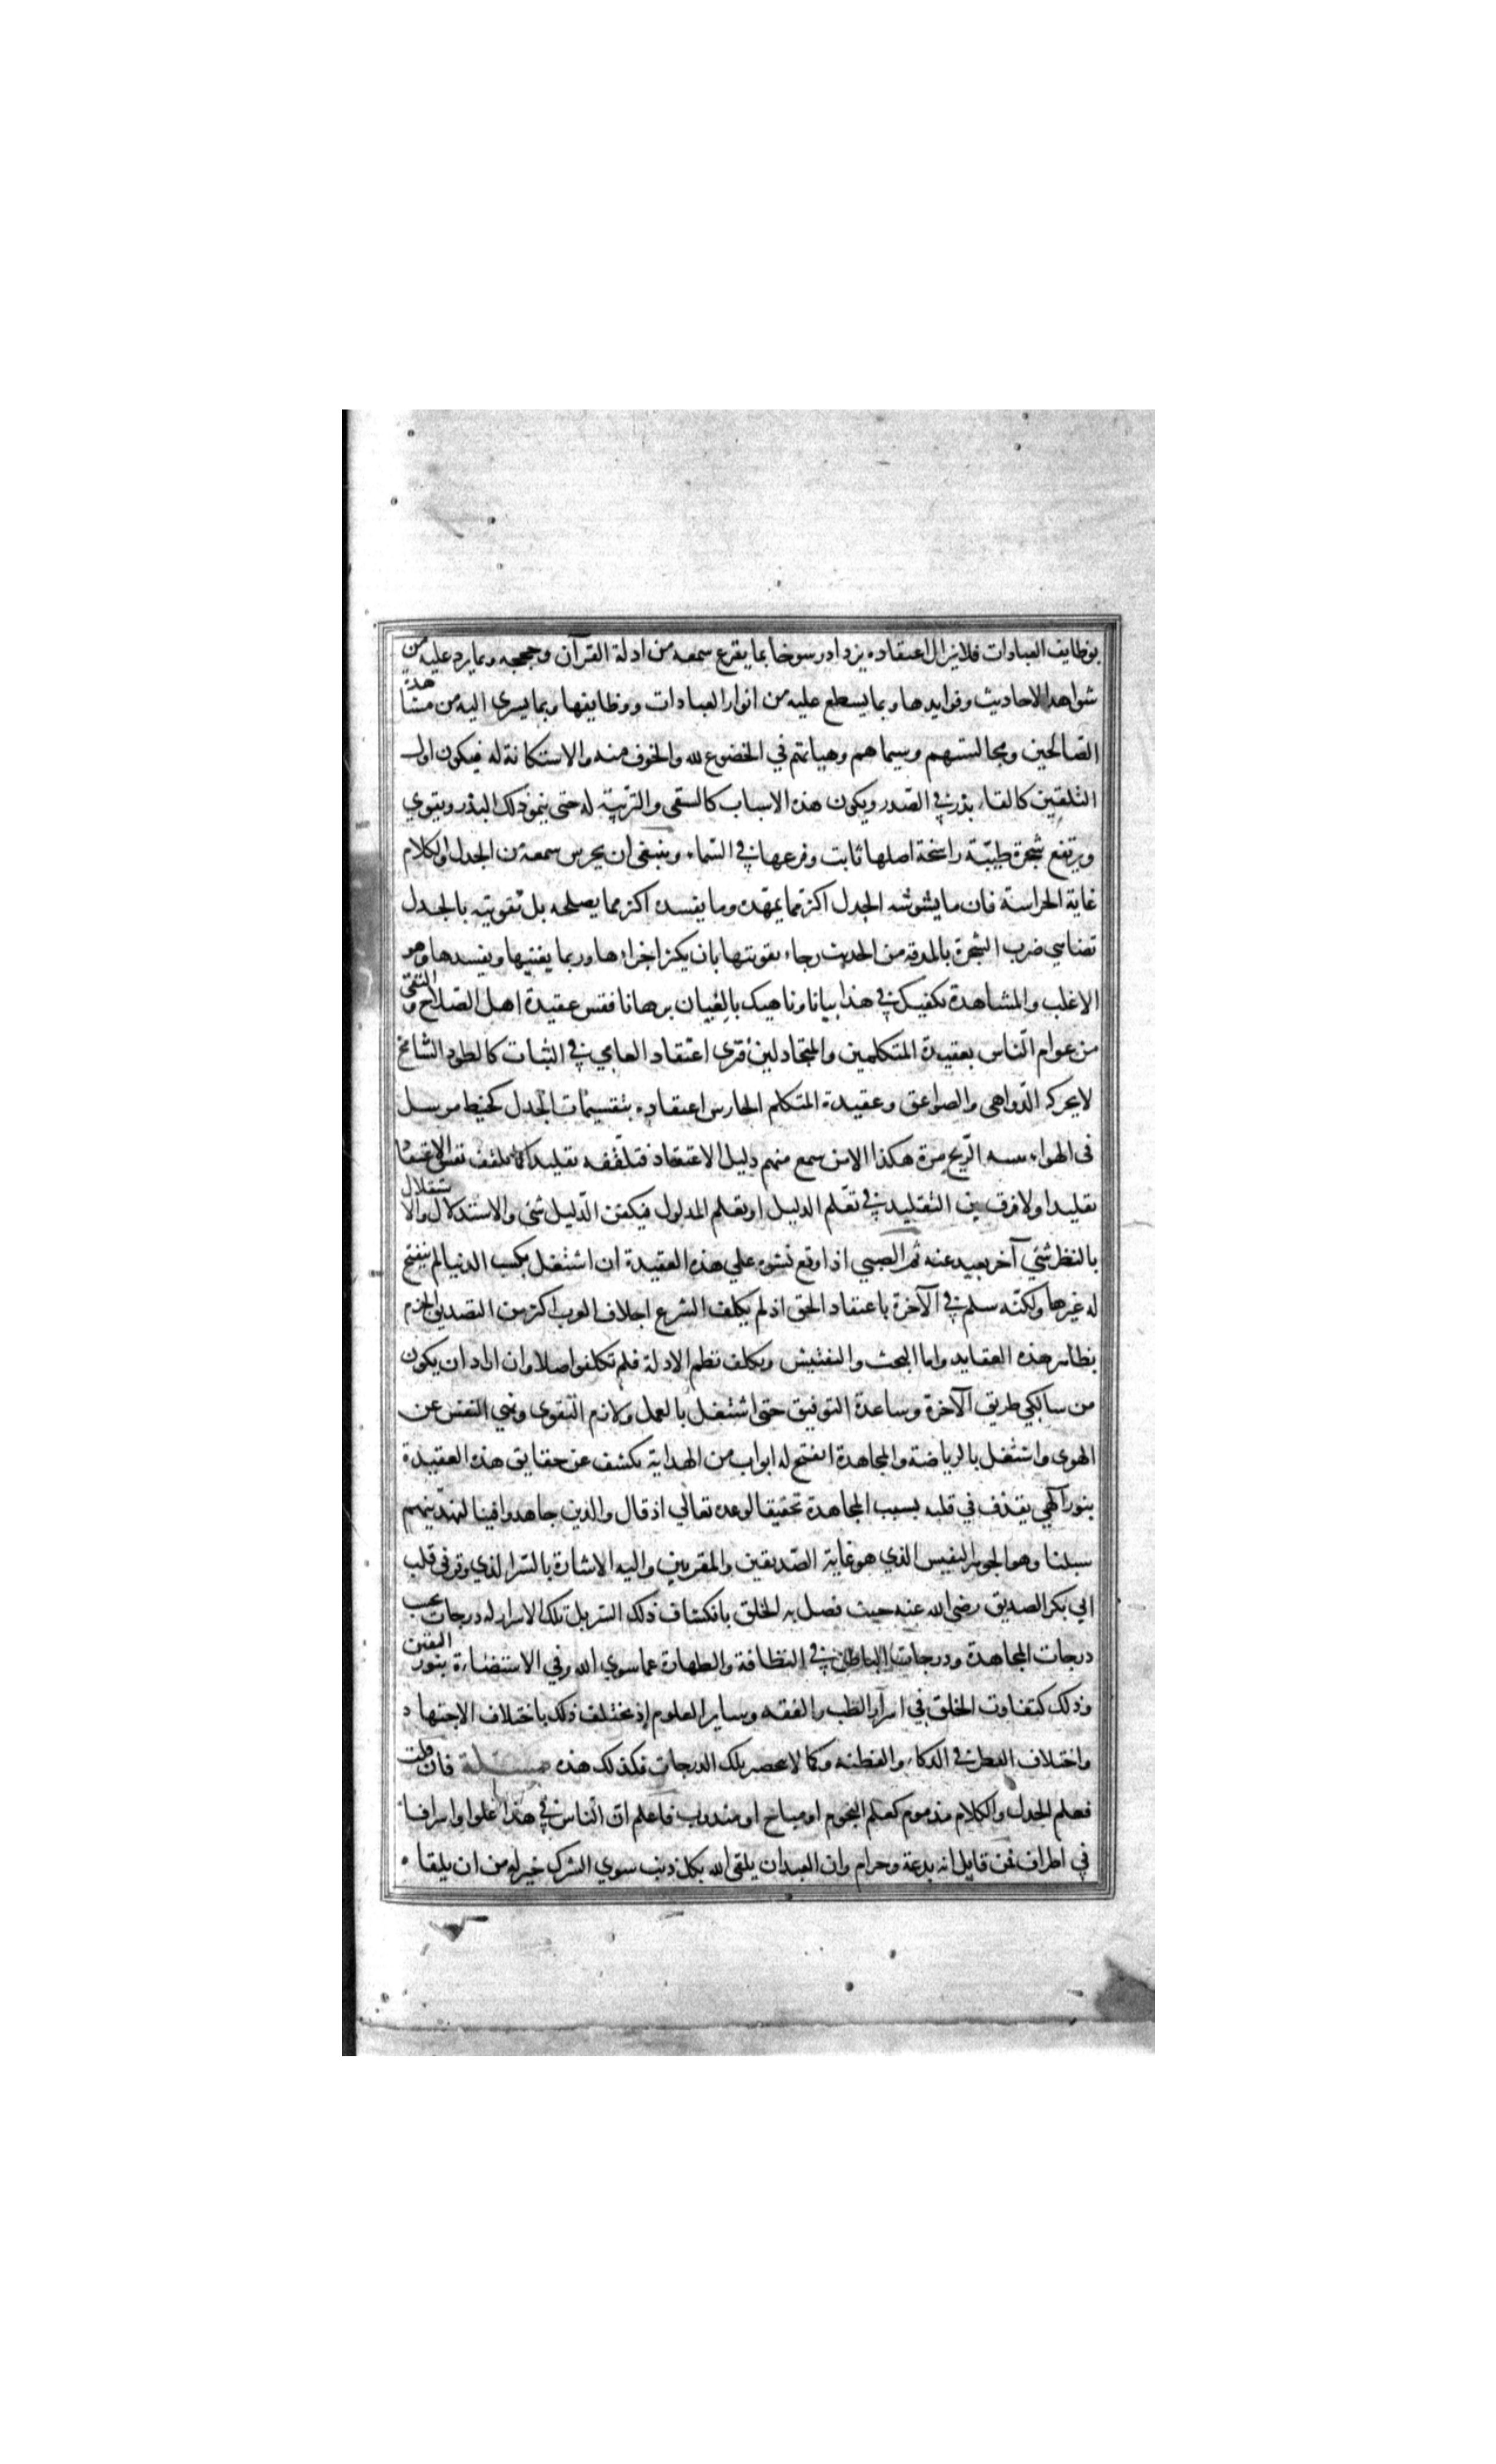 بوظايف العبادات فلا يزال اعتقاده يزداد رسوخا بما يقرع سمعه من ادلة القرآن وحججه وبما يرد عليه من
شواهد الاحاديث وفوايدها وبما يسطع عليه من انوار العبادات ووظايفها وبما يسرى اليه من مشاهدة
الصالحين ومجالستهم وسيماهم وهياتهم في الخضوع لله والخوف منه والاستكانة له فيكون اول
التلقين كالقاء بذر في الصدور ويكون هذه الاسباب كالسقى والتربية له حتى ينمو ذلك البذر ويقوي
ويرتفع شجرة طيبة راسخة اصلها ثابت وفرعها في السماء وينبغى ان يحرس سمعه من الجدل والكلام
غاية الحراسة فان ما يشوشه الجدل اكثر مما يمهده وما يفسده اكثر مما يصلحه بل تقويته بالجدل
تضاهي ضرب الشجرة بالمدقة من الحديد رجاء تقويتها بان يكثر اجزاءها وربما يفتتها ويفسدها وهو
الاغلب والمشاهدة تكفيك في هذا بيانا وناهيك بالعيان برهانا فقس عقيدة اهل الصلاح والتقى
من عوام الناس بعقيدة المتكلمين والمتجادلين فترى اعتقاد العامي في الثبات كالطود الشامخ
لا يحركه الدواهى والصواعق وعقيدة المتكلم الحارس اعتقاده بتقسيمات الجدل كخيط مرسل
فى الهواء الريح مرة هكذا الا من سمع منهم دليل الاعتقاد فتلقفه تقليدا كما تلقف نفس الاعتقاد
تقليدا ولا فرق في التقليد في تعلم الدليل او تعلم المدلول فتلقن الدليل شئ والاستدلال والاستقلال
بالنظر شئ آخر بعيد عنه ثم الصبي اذا وقع نشوه علي هذه العقيدة ان اشتغل بكسب الدنيا لم ينفتح
له غيرها ولكنه سلم في الآخرة باعتقاد الحق اذ لم يكلف الشرع اجلاف العرب اكثر من التصديق الجزم
بظاهر هذه العقايد واما البحث والتفتيش وتكلف نظم الادلة فلم تكلفوا اصلا وان اراد ان يكون
من سالكي طريق الآخرة وساعده التوفيق حتى اشتغل بالعمل ولازم التقوى ونهي النفس عن
الهوى واشتغل بالرياضة والمجاهدة انفتح له ابواب من الهداية تكشف عن حقايق هذه العقيدة
بنور آلهي يقذف في قلبه بسبب المجاهدة تحقيقا لوعده تعالي اذ قال والذين جاهدوا فينا لنهدينهم
سبلنا وهو الجوهر النفيس الذي هو غاية الصديقين والمقربين واليه الاشارة بالسر الذي وقر في قلب
ابي بكر الصديق رضى الله عنه حيث فضل به الخلق بانكشاف ذلك السر بل تلك الاسرار له درجات بحسب
درجات المجاهدة ودرجات الباطن في النظافة والطهارة عما سوي الله وفي الاستضاءة بنور اليقين
وذلك كتفاوت الخلق في اسرار الطب والفقه وساير العلوم اذ يختلف ذلك باختلاف الاجتهاد
واختلاف الفطر في الذكاء والفطنة وكما لا تحصر تلك الدرجات فكذلك هذه مسئلة فان قلت
فعلم الجدل والكلام مذموم كعلم النجوم او مباح او مندوب فاعلم ان الناس في هذا غلوا واسرافا
في اطراف فمن قايل انه بدعة وحرام وان العبد ان يلقى الله بكل ذنب سوي الشرك خير له من ان يلقاه